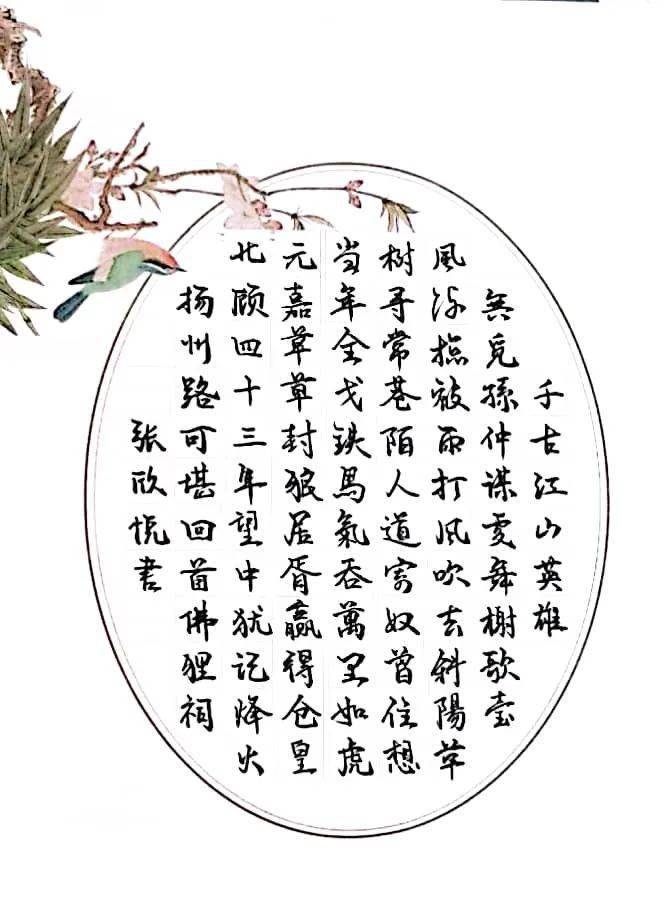 千古江山英雄
無覓孫仲謀處舞榭歌臺
風流總被雨打風吹去斜陽草
樹尋常巷陌人道寄奴曾住想
當年金戈鐵馬氣吞萬里如虎
元嘉草草封狼居胥贏得倉皇
北顾四十三年望中犹記烽火
揚州路可堪回首佛狸祠
張欣悅書